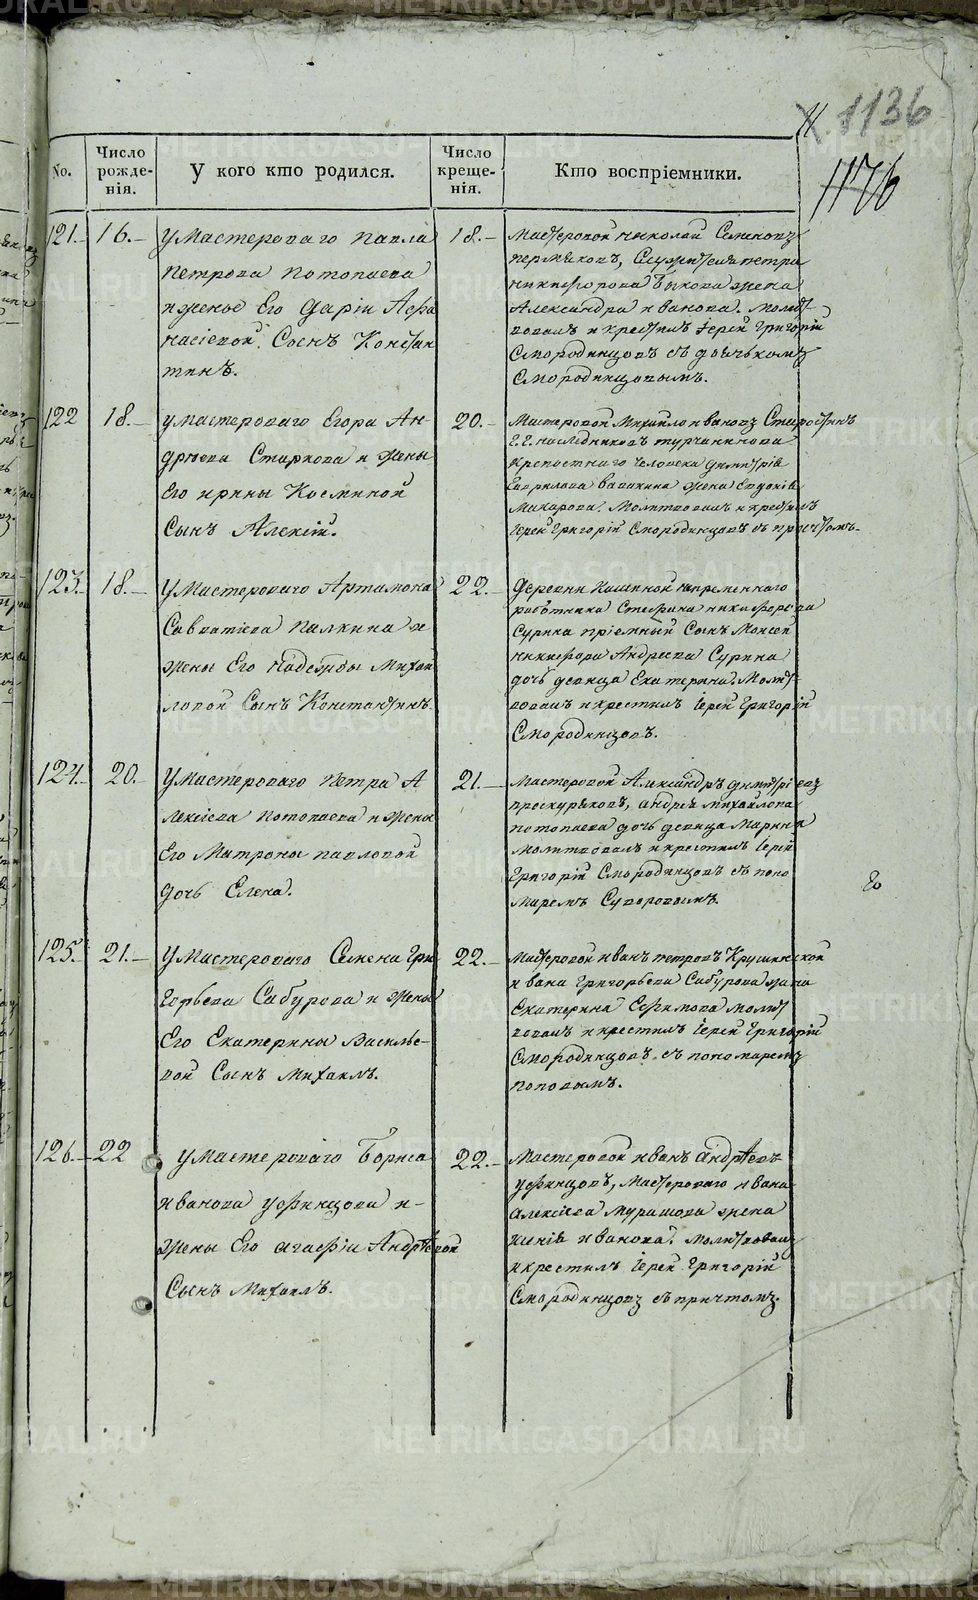 1136
1176
No.
Число рожде-нія.
У кого кто родился.
Число креще-нія.
Кто воспріемники.
121.
16.
у Мастероваго Павла
Петрова Потопаева
и жены Его Даріи Афа
насіевой Сынъ Констан
тинъ.
18.
Мастеровой Николай Семеновъ
Пермяковъ, Служителя петра
никифорова Быкова жена
Александра иванова. Молит
вовалъ и крестилъ Іерей Григорій
Смородинцовъ съ дьячькомъ
Смородинцовымъ.
122
18.
у мастероваго Егора Ан-
дреева Старкова и жены
Его ирины Косминой
Сынъ Алексій.
20.
Мастеровой Михайло ивановъ Старостинъ
Г. Г. наследниковъ турчанинова
крепостнаго человека димитрія
Гаврилова Бабакина жена Евдокія
Макарова. Молитвовалъ и крестилъ
Іерей Григорій Смородинцовъ съ причтомъ.
123.
18.
у Мастероваго Артамона
Савватіева Палкина и
жены Его Надежды Михай
ловой Сынъ Константинъ.
22.
Деревни Кашиной непременнаго
работника Стефана никифорова
Сурина пріемный Сынъ Моисей
никифора Андреева Сурина
дочь девица Екатерина. Молит-
вовалъ и крестилъ Іерей Григорій
Смородинцовъ.
124.
20.
у Мастероваго Петра А
лексіева Потопаева и жены
Его Матроны павловой
дочь Елена.
21.
Мастеровой Александръ димитріевъ
проскуряковъ, андрея михайлова
потопаева дочь девица Марина
Молитвовалъ и крестилъ Іерей
Григорій Смородинцовъ съ поно
маремъ Суворовымъ.
125.
21.
у Мастероваго Семена Гри
горьева Сабурова и жены
Его Екатерины Василье-
вой Сынъ Михаилъ.
22.
Мастеровой иванъ петровъ Крушинской
ивана Григорьева Сабурова жена
Екатерина Ефимова молит
вовалъ и крестилъ Іерей Григорій
Смородинцовъ съ пономаремъ
Поповымъ.
126.
22
у мастероваго Бориса
иванова уфинцова и-
жены Его агафіи Андреевой
Сынъ Михаилъ.
22.
Мастеровой иванъ андреевъ
уфинцовъ, Мастероваго ивана
алексіева Мурашова жена
иванова. Молитвовалъ
и крестилъ Іерей Григорій
Смородинцовъ съ причтомъ.
METRIKI.GASO-URAL.RU